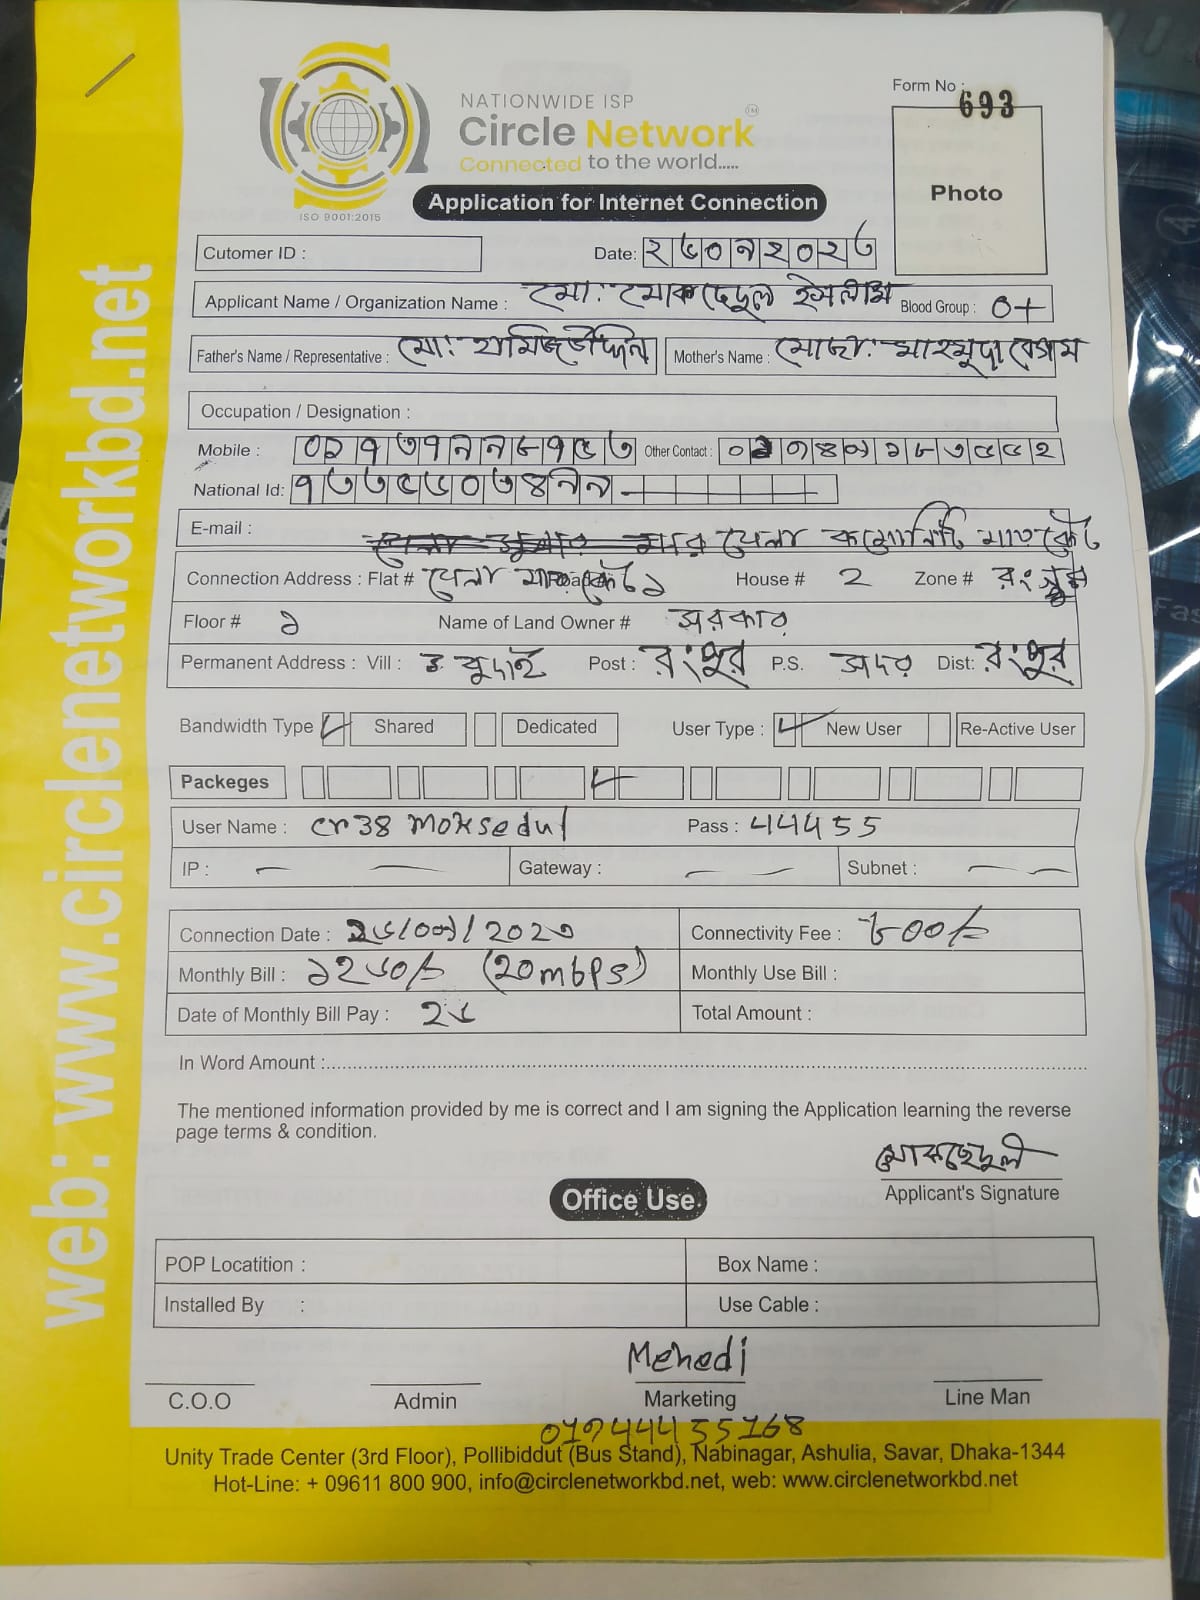 Form No : 693
NATIONWIDE ISP
Circle Network TM
Connected to the world.....
ISO 9001:2015
Photo
Application for Internet Connection
Cutomer ID :
Date: ২৬০৯২০২৩
Applicant Name / Organization Name : মো: মোকছেদুল ইসলাম Blood Group : O+
Father's Name / Representative : মো: হামিজউদ্দিন Mother's Name : মোছা: মাহমুদা বেগম
Occupation / Designation :
Mobile : Other Contact :
National Id:
E-mail : মেলা
Connection Address : Flat # House # 2 Zone # রংপুর
Floor # ১ Name of Land Owner # সরকার
Permanent Address : Vill : Post : রংপুর P.S. সদর Dist: রংপুর
Bandwidth Type Shared Dedicated User Type : New User Re-Active User
Packeges
User Name : cn38 moksedul Pass : 44455
IP : Gateway : Subnet :
Connection Date : ২৬/০৯/2023 Connectivity Fee : ৮০০/=
Monthly Bill : ১2৬0/= (20mbps) Monthly Use Bill :
Date of Monthly Bill Pay : 2৬ Total Amount :
In Word Amount :
The mentioned information provided by me is correct and I am signing the Application learning the reverse
page terms & condition.
মোকছেদুল
Applicant's Signature
Office Use
POP Locatition : Box Name :
Installed By : Use Cable :
Mehedi
C.O.O Admin Marketing Line Man
01944455168
Unity Trade Center (3rd Floor), Pollibiddut (Bus Stand), Nabinagar, Ashulia, Savar, Dhaka-1344
Hot-Line: + 09611 800 900, info@circlenetworkbd.net, web: www.circlenetworkbd.net
web: www.circlenetworkbd.net